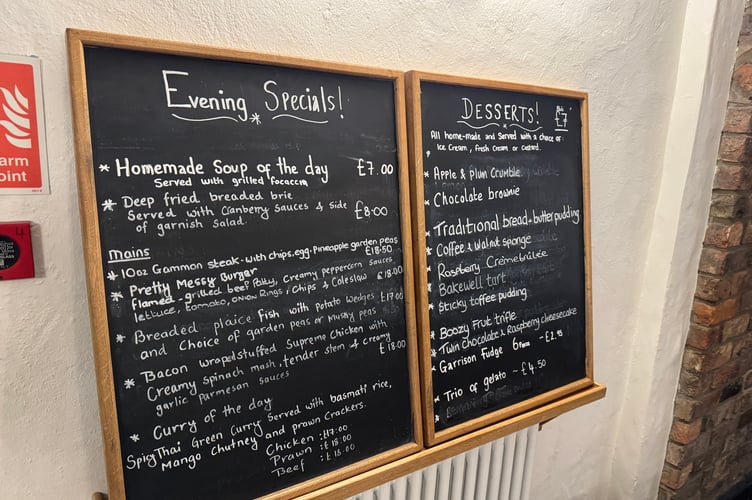 arm
oint
Evening Specials!
* Homemade Soup of the day £7.00
Served with grilled focaccia
* Deep fried breaded brie
Served with Cranberry Sauces & Side £8.00
of garnish Salad
mains
* 10oz Gammon steak with chips, egg, Pineapple garden peas
£18.50
* Pretty Messy Burger
flamed-grilled beef Patty, Creamy Peppercorn Sauces
lettuce, tomato, onion Rings, Chips & Coleslaw £18.00
* Breaded plaice fish with Potato wedges £17.00
and Choice of garden peas or Mushy peas
* Bacon wrapedstuffed Supreme Chicken with
Creamy spinach mash, tender stem & Creamy £18.00
garlic Parmesan sauces
* Curry of the day
Thai Green Curry Served with basmati rice,
Mango Chutney and Prawn Crackers.
Chicken : £17.00
Prawn : £18.00
Beef : £18.00
DESSERTS! £7
All home-made and Served with a choice of:
Ice Cream, fresh Cream or Custard.
* Apple & Plum Crumble
* Chocolate brownie
* Traditional bread + butter pudding
* Coffee & Walnut sponge
* Raspberry Crème brûlée
* Bakewell tart
* Sticky toffee pudding
* Boozy Fruit trifle
* Twin chocolate & Raspberry cheesecake
* Garrison Fudge 6 - £2.95
* Trio of gelato ~ £4.50